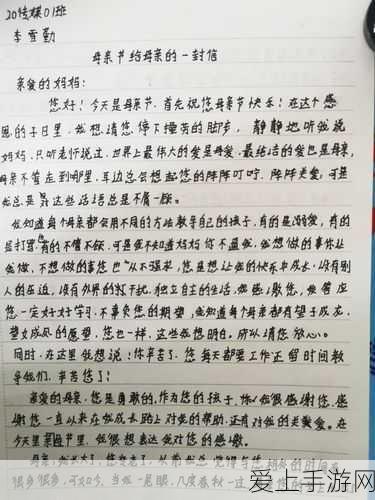 20传媒01班
李雪勤
母亲节给母亲的一封信
亲爱的妈妈：
您好！今天是母亲节，首先说您母亲节快乐！在这个感
恩的子日里，我想请您停下撞劳的脚步，静静地听我说
妈妈，只听老师说过，世界上最伟大的爱是母爱，最纯洁的爱也是母亲，
母亲不管走到哪里，耳边总会想起您的阵阵叮咛，阵阵关爱，可是
我总是是这些话语总是不屑一顾。
我知道每个母亲都会用不同的方法教导自己的孩子，有的是溺爱，有的
是打骂，有的不管不顾，可是我不知道妈妈你不逼我，我想做的事你让
我做，不想做的事您也从不强求，您是想让我的快乐中成长，没有别
人的压迫，没有外界的打干扰，独立自主的生活，我感谢您，我答应
您一定好好学习，不辜负您的期望，我知道每个母亲都有望子成龙，
望女成凤的愿望，您也一样，这些我都明白。所以请您放心。
同时，在这里我想说：你辛苦了！您每天都要工作还留时间教
导我们，辛苦您了！
亲爱的母亲，您是勇敢的，作为您的孩子，你我很感谢您，感
谢您一直以来在我成长路上对我的帮助，还有对我的关爱。在
今天里节里，我很想表达我对您的感激。
母亲，我长大了，您变老了，从前我总觉得与您相处的时间
很多很多，可如今，当我一晃眼，几度春秋一过
爱上手游网